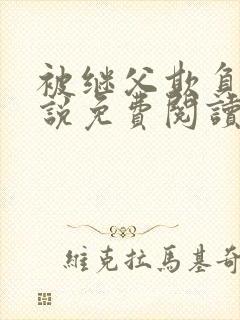 被继父欺負
説免費閱讀
維克拉馬基奇